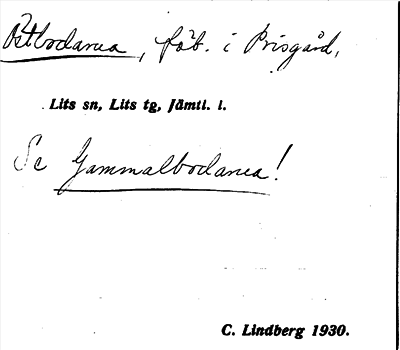 Östbodarna, fäb. i Prisgård,
Lits sn, Lits tg, Jämtl. l.
Se Gammalbodarna!
C. Lindberg 1930.